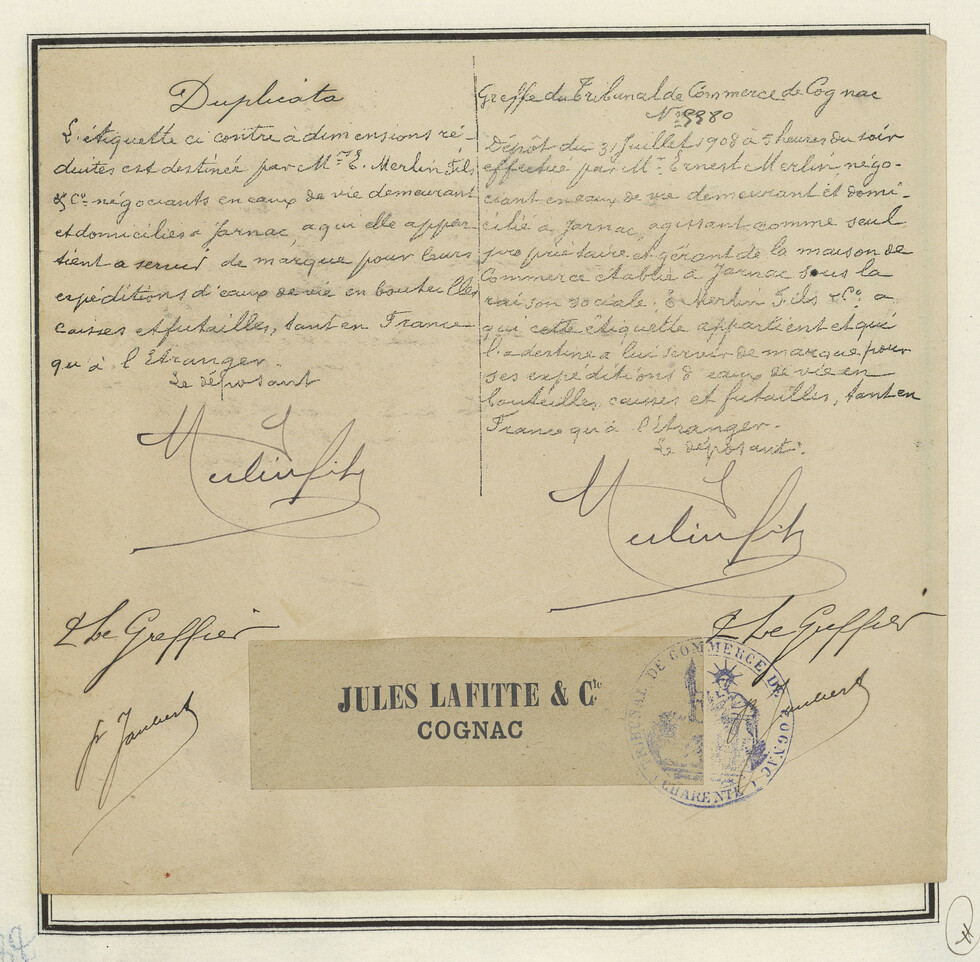 Duplicata
L'étiquette ci contre à dimensions ré-
duites est destinée par Mrs E. Merlin Fils
& Co négociants en eaux de vie demeurant
et domiciliés à Jarnac, a qui elle appar-
tient a servir de marque pour leurs
expéditions d'eaux de vie en bouteilles
caisses et futailles, tant en France
qu'à l'Etranger.
Le déposant
Merlin fils
Le Greffier
Greffe du Tribunal de Commerce de Cognac
Dépôt du 31 Juillet 1908 à 5 heures du soir
effectué par Mr Ernest Merlin, négo-
ciant en eaux de vie demeurant et domi-
cilié à Jarnac, agissant comme seul
propriétaire et gérant de la maison de
Commerce etablie à Jarnac sous la
raison sociale: E Merlin Fils & Co a
qui cette étiquette appartient et qui
l'a destine a lui servir de marque pour
ses expéditions d'eaux de vie en
bouteilles, caisses et futailles, tant en
France qu'à l'étranger.
Le déposant.
Merlin fils
Le Greffier
JULES LAFITTE & Cie
COGNAC
TRIBUNAL DE COMMERCE DE COGNAC
(CHARENTE)